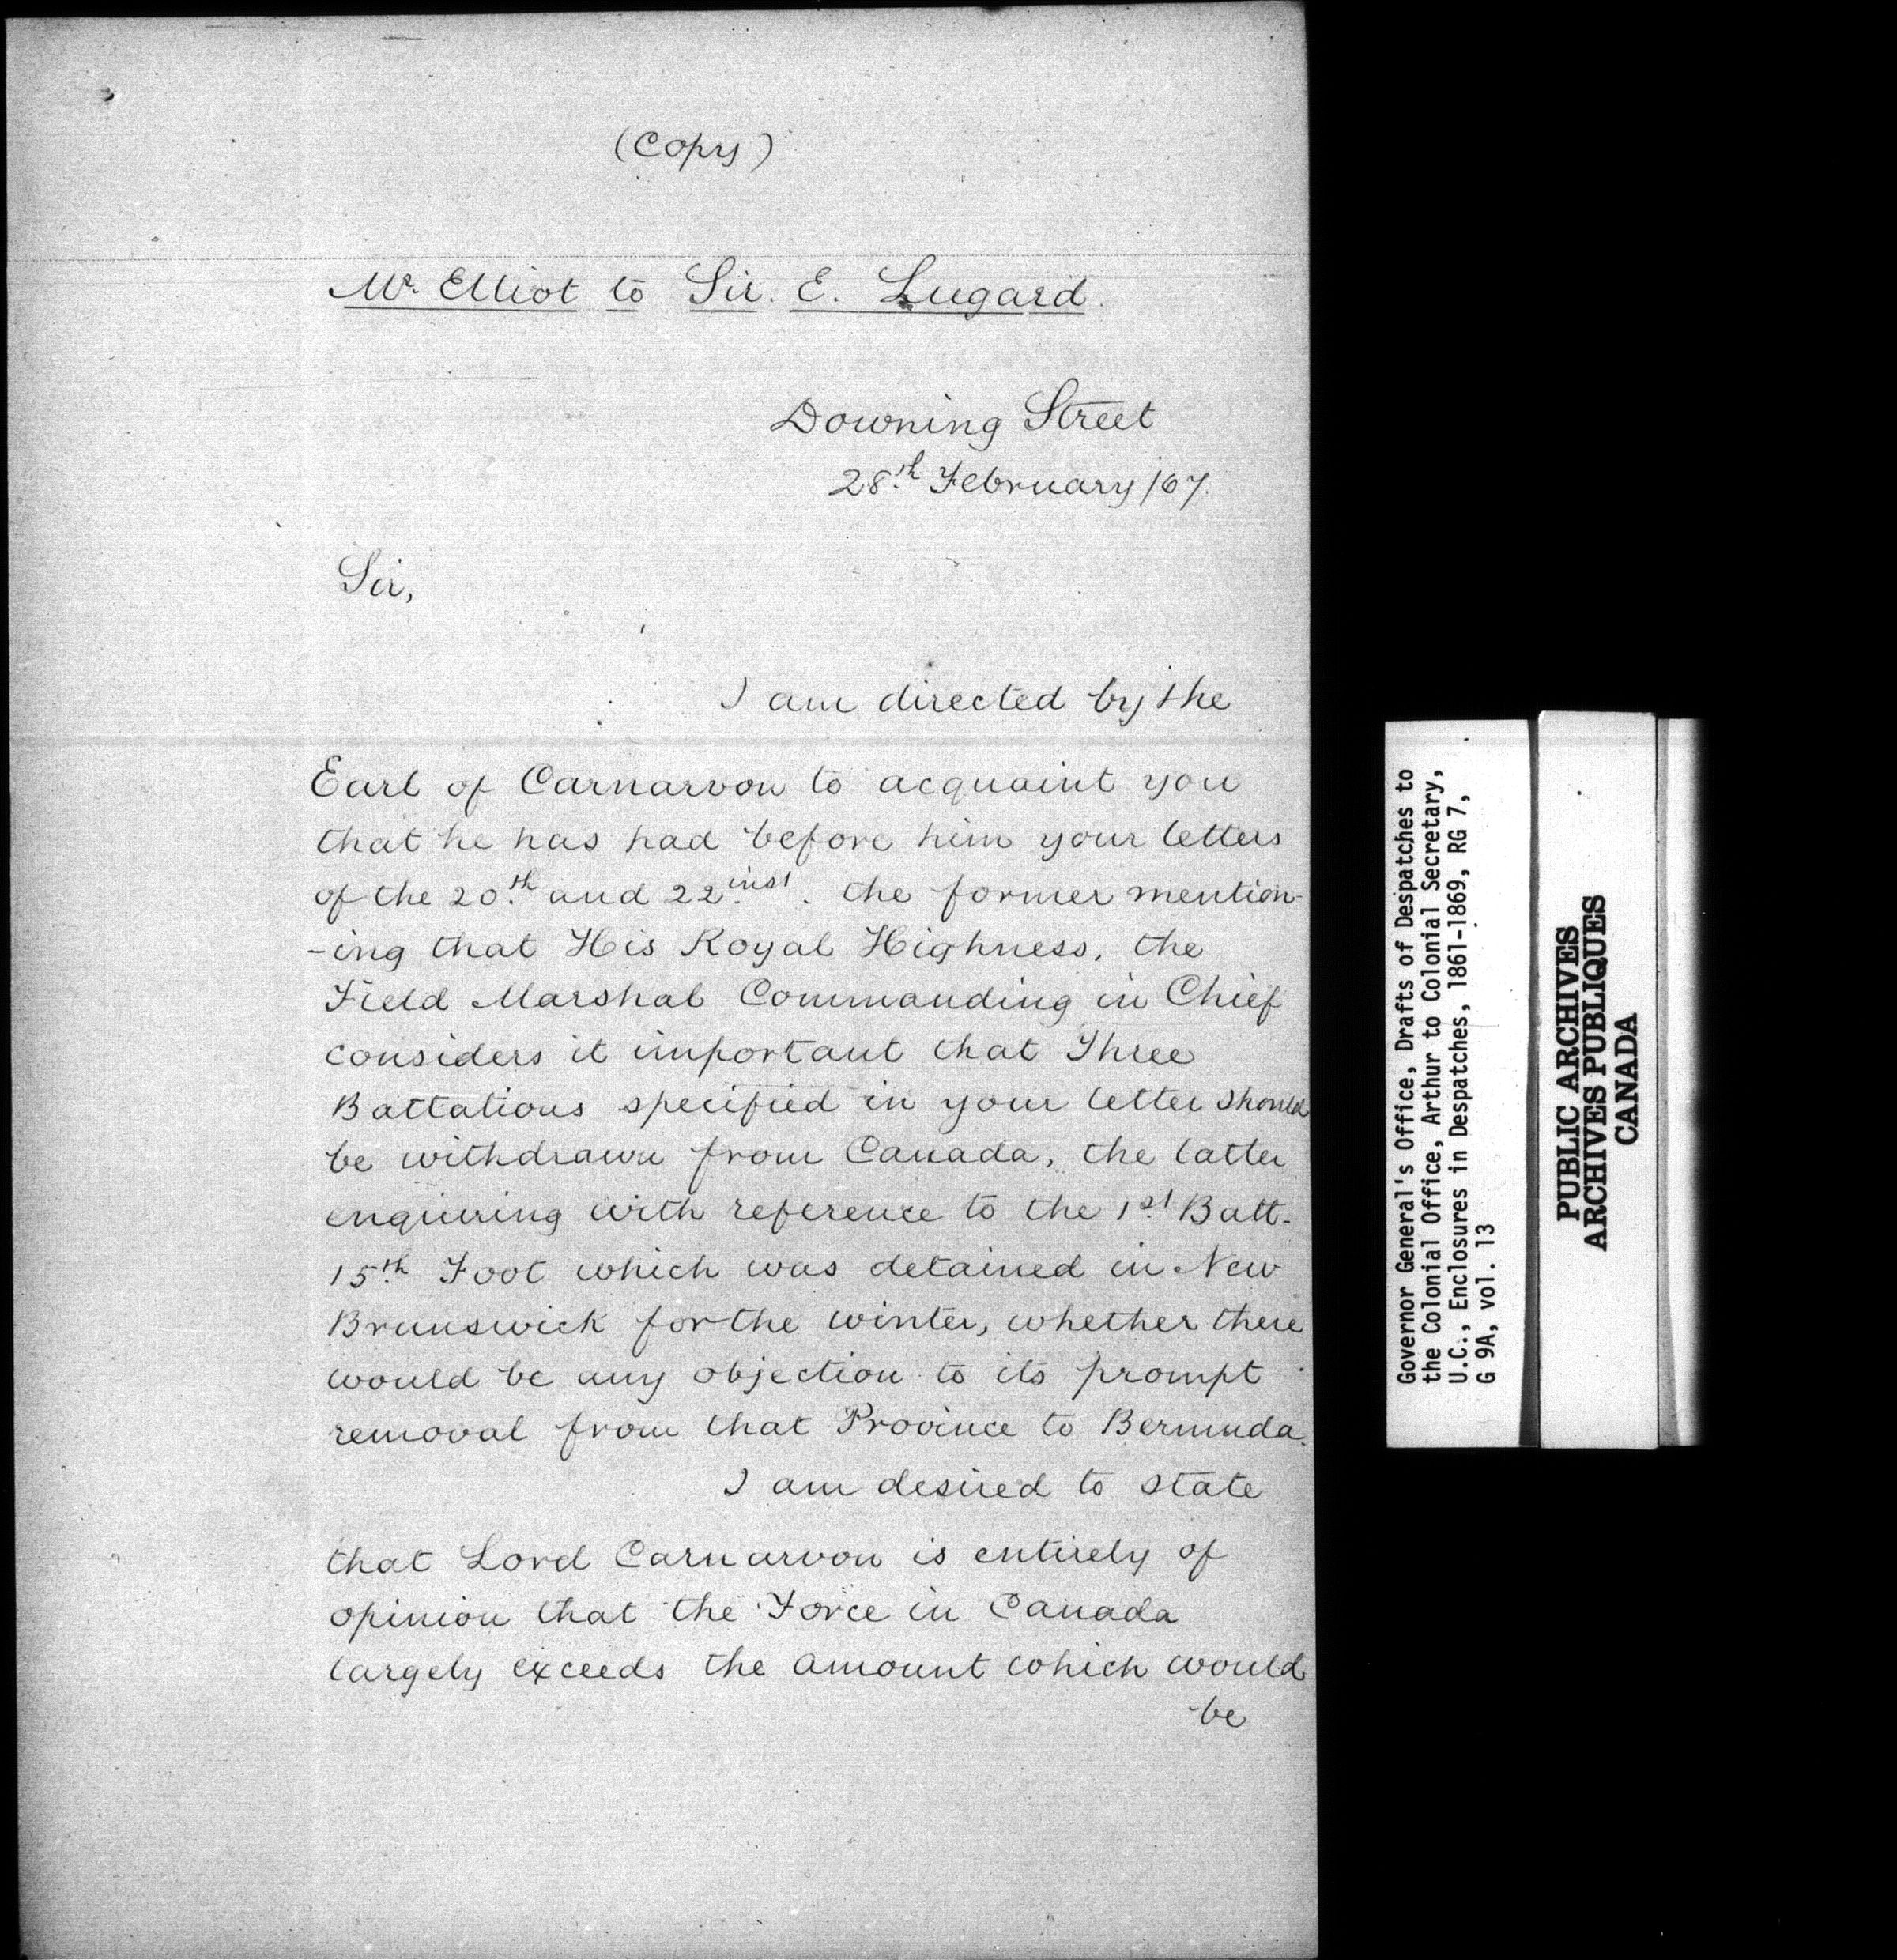 (Copy)
Mr. Elliot to Sir. E. Lugard.
Downing Street
28th February /67.
Sir,
I am directed by the
Earl of Carnarvon to acquaint you
that he has had before him your letters
of the 20th and 22 inst. the former mention-
-ing that His Royal Highness, the
Field Marshal Commanding in Chief
considers it important that Three
Battalions specified in your letter should
be withdrawn from Canada, the latter
enquiring with reference to the 1st Batt.
15th Foot which was detained in New
Brunswick for the winter, whether there
would be any objection to its prompt
removal from that Province to Bermuda.
I am desired to state
that Lord Carnarvon is entirely of
opinion that the Force in Canada
largely exceeds the amount which would
be
Governor General's Office, Drafts of Despatches to
the Colonial Office, Arthur to Colonial Secretary,
U.C., Enclosures in Despatches, 1861-1869, RG 7,
G 9A, vol. 13
PUBLIC ARCHIVES
ARCHIVES PUBLIQUES
CANADA